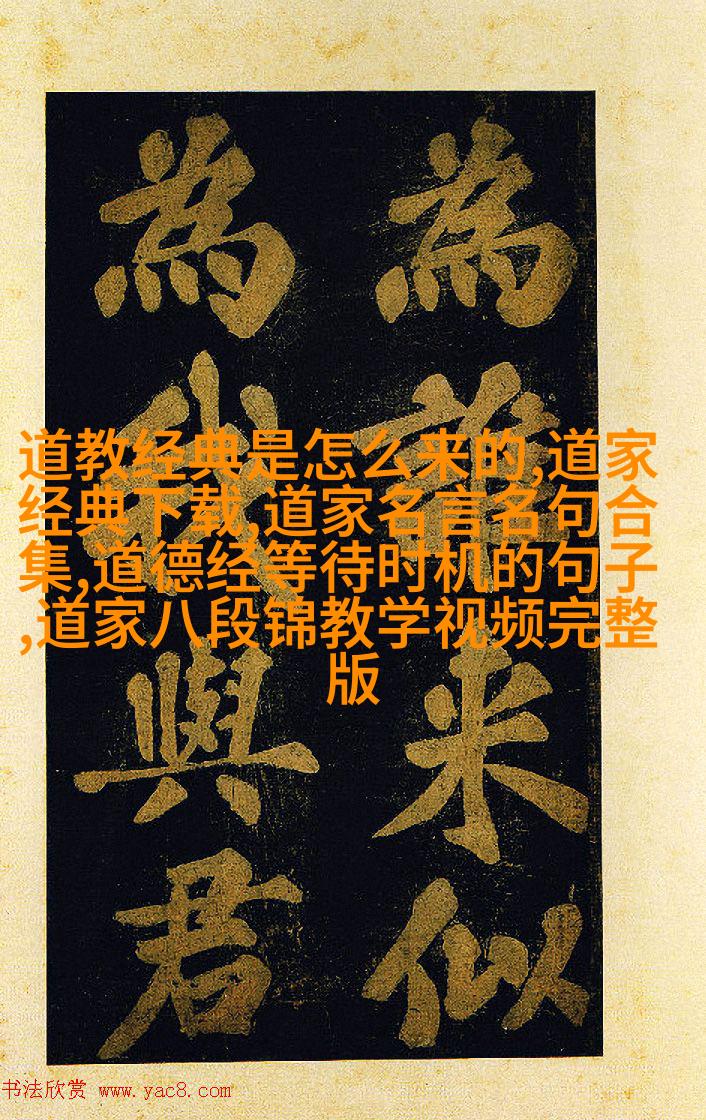 為誰来似
為我與君
道教经典是怎么来的,道家
经典下载,道家名言名句合
集,道德经等待时机的句子
,道家八段锦教学视频完整
版
书法欣赏 www.yac8.com